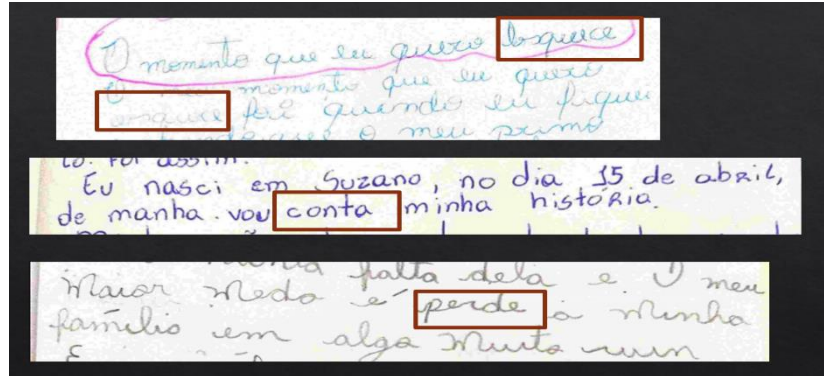 O momento que eu quero Esquece
O meu momento que eu quero
esquece foi quando eu fiquei
o meu primo
to. Foi assim.
Eu nasci em Suzano, no dia 15 de abril,
de manha. vou conta minha história.
falta dela e O meu
Maior Medo é perde a Minha
família em algo Muito ruim